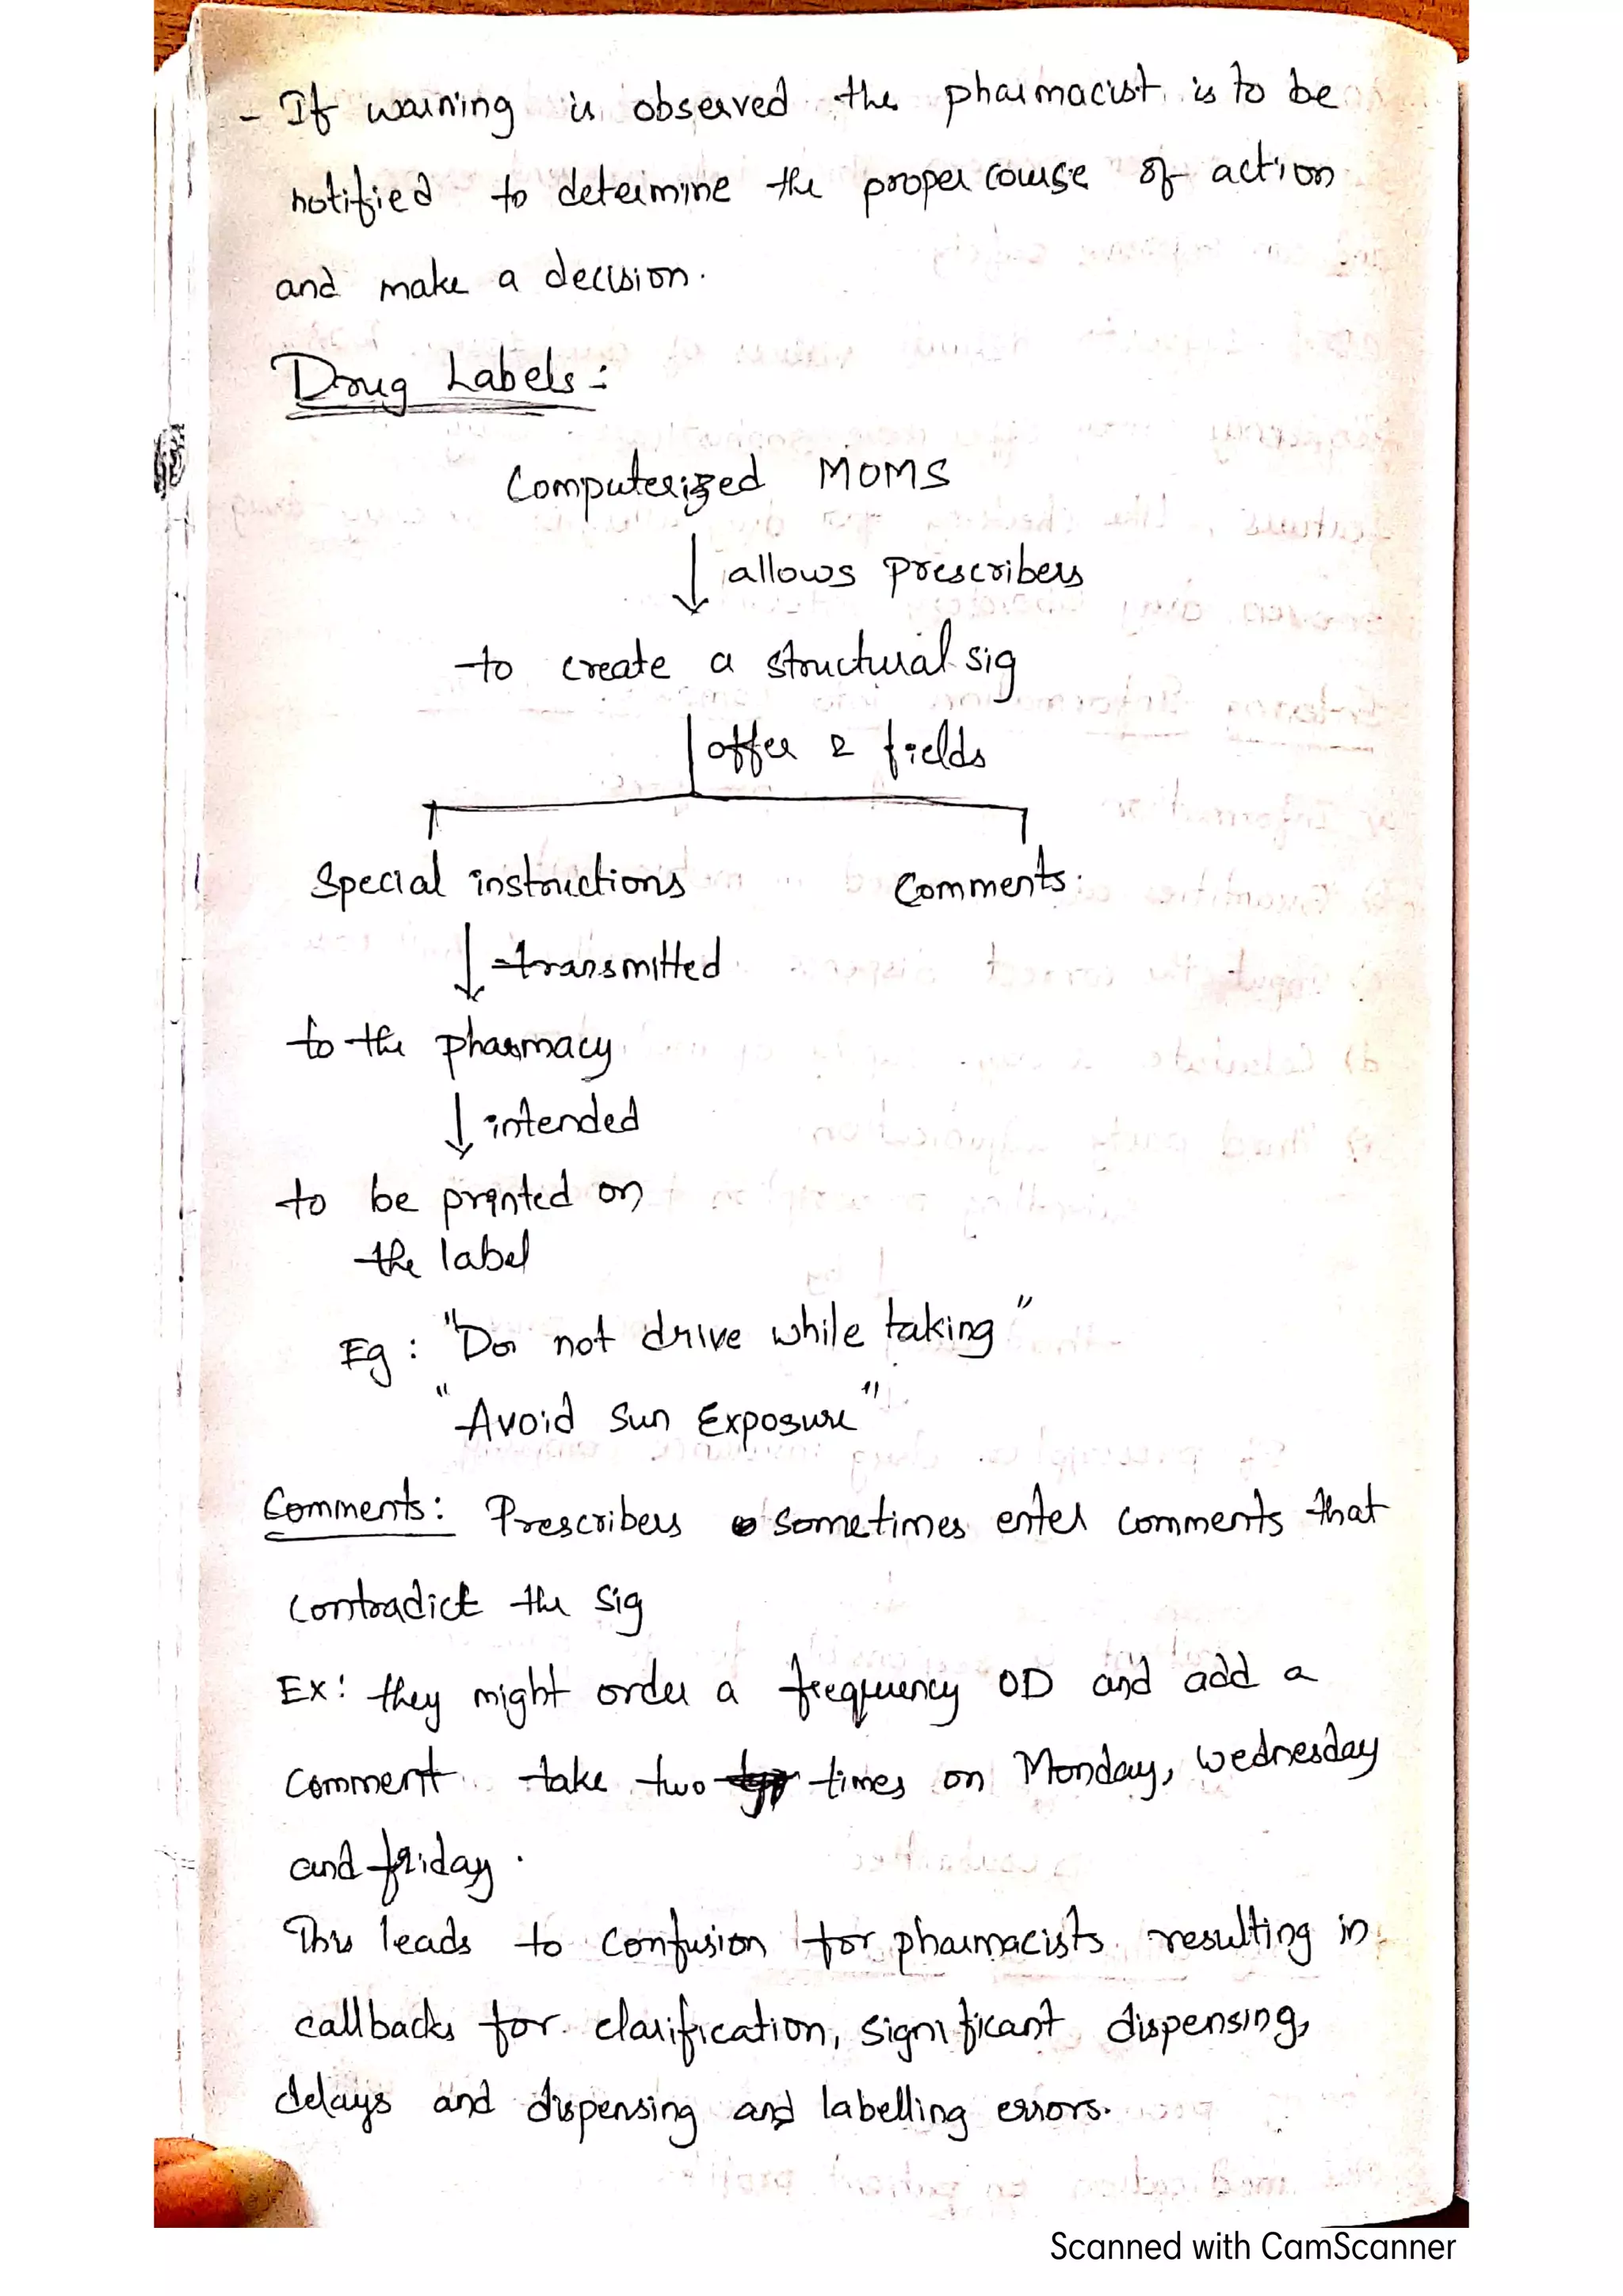 - If warning is observed the pharmacist is to be
notified to determine the proper course of action
and make a decision.
Drug Labels :
Computerized MOMS
allows prescribers
to create a structural sig
offer 2 fields
Special instructions Comments.
transmitted
to the pharmacy
intended
to be printed on
the label
Eg : "Do not drive while taking"
"Avoid Sun Exposure"
Comments: Prescribers sometimes enter comments that
contradict the sig
Ex: they might order a frequency OD and add a
comment take two times on Monday, Wednesday
and friday.
This leads to confusion for pharmacists resulting in
callbacks for clarification, significant dispensing,
delays and dispensing and labelling errors.
Scanned with CamScanner